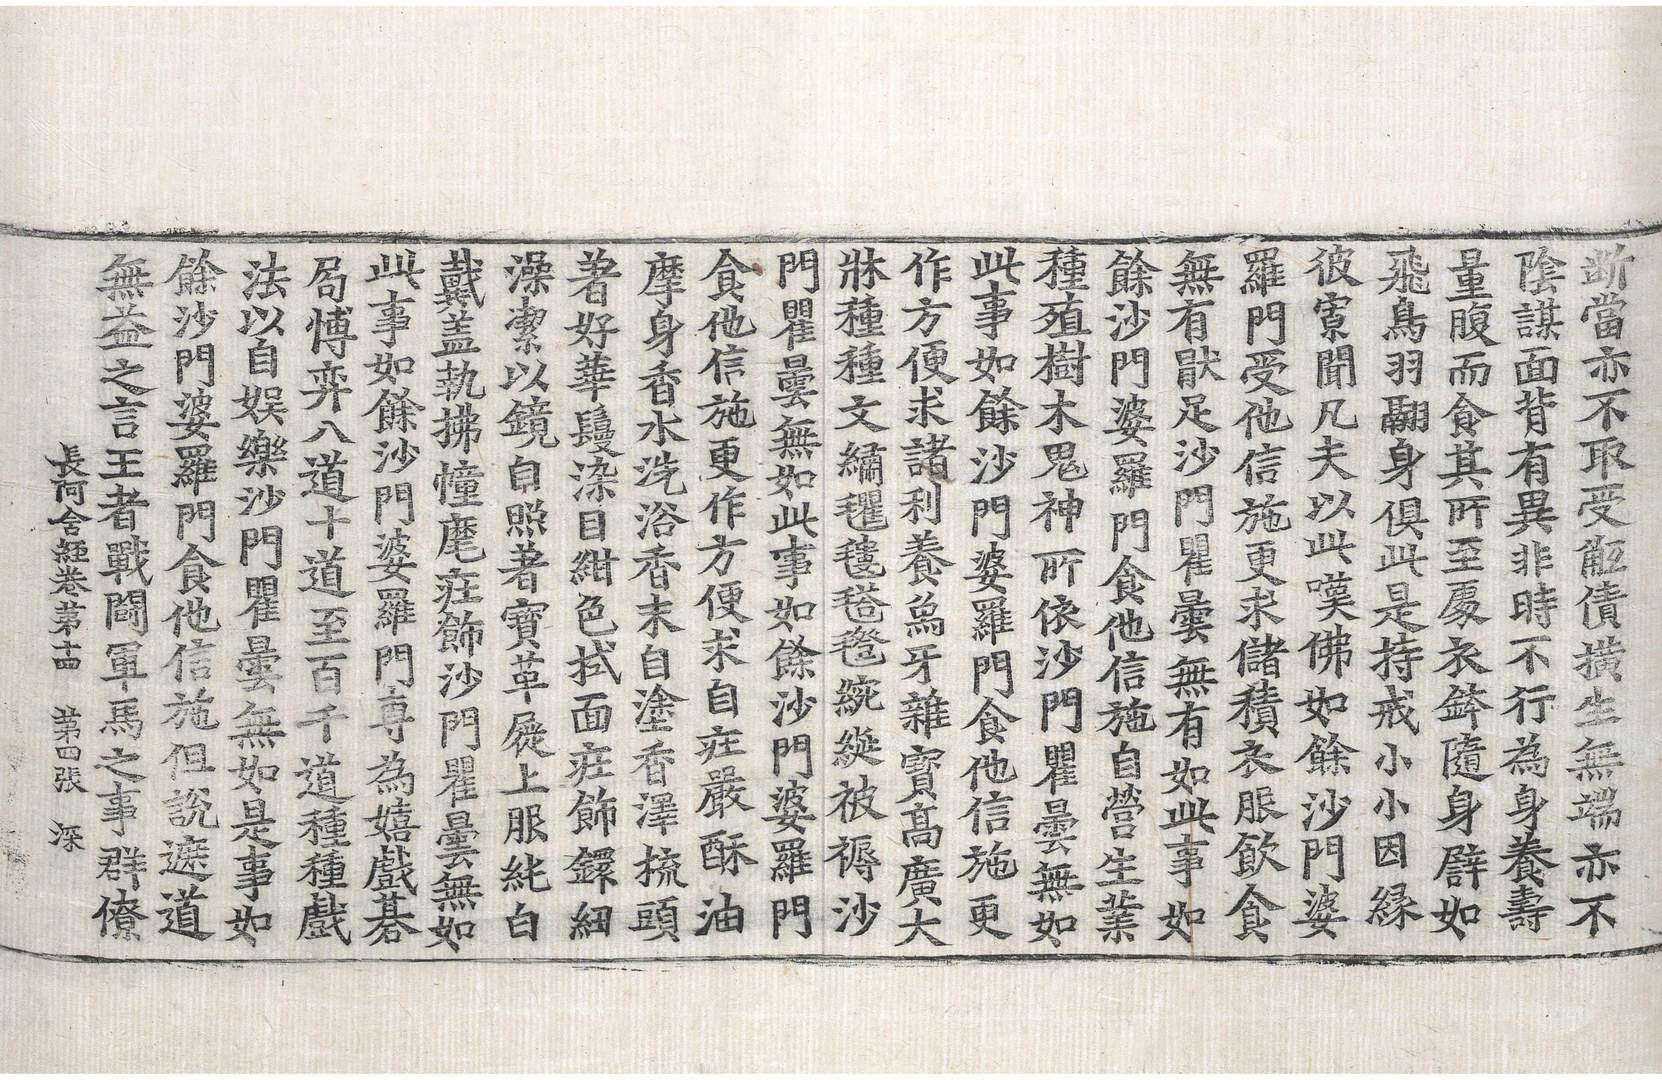 斷當亦不取受觝債撗生無端亦不
陰謀面背有異非時不行為身養壽
量腹而食其所至處衣鉢隨身譬如
飛鳥羽翮身俱此是持戒小小因緣
彼寡聞凡夫以此嘆佛如餘沙門婆
羅門受他信施更求儲積衣服飮食
無有猒足沙門瞿曇無有如此事如
餘沙門婆羅門食他信施自營生業
種殖樹木鬼神所依沙門瞿曇無如
此事如餘沙門婆羅門食他信施更
作方便求諸利養象牙雜寶高廣大
牀種種文繡氍㲣毾㲪綩綖被褥沙
門瞿曇無如此事如餘沙門婆羅門
食他信施更作方便求自莊嚴酥油
摩身香水洗浴香末自塗香澤梳頭
著好華鬘染目紺色拭面莊飾鐶紐
澡潔以鏡自照著寶革屣上服純白
戴盖執拂幢麾莊飾沙門瞿曇無如
此事如餘沙門婆羅門專為嬉戲棊
局博弈八道十道至百千道種種戲
法以自娛樂沙門瞿曇無如是事如
餘沙門婆羅門食他信施但說遮道
無益之言王者戰鬪軍馬之事群僚
長阿含經卷第十四 第四張 深